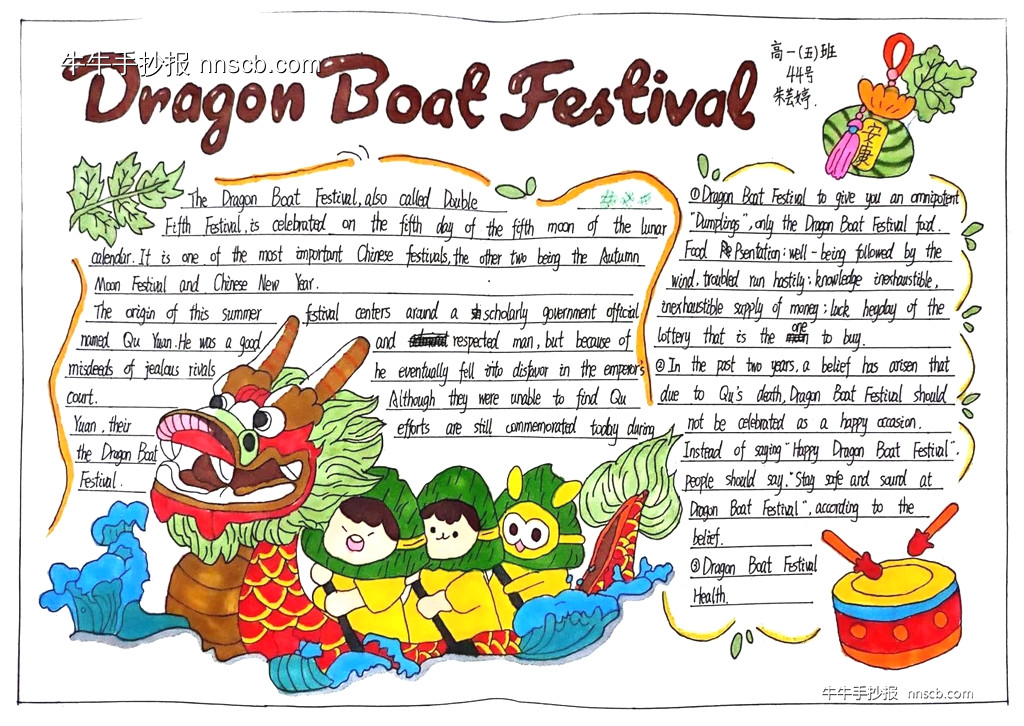 牛牛手抄报 nnscb.com
Dragon Boat Festival
高一(五)班
44号
朱芸婷.
安康
The Dragon Boat Festival, also called Double
Fifth Festival, is celebrated on the fifth day of the fifth moon of the lunar
calendar. It is one of the most important Chinese festivals, the other two being the Autumn
Moon Festival and Chinese New Year.
The origin of this summer festival centers around a scholarly government official
named Qu Yuan. He was a good and respected man, but because of
misdeeds of jealous rivals he eventually fell into disfavor in the emperor's
court. Although they were unable to find Qu
Yuan, their efforts are still commemorated today during
the Dragon Boat
Festival.
①Dragon Boat Festival to give you an omnipotent
"Dumplings", only the Dragon Boat Festival food.
Food Psentation: well-being followed by the
wind, troubled run hostily; knowledge inexhaustible,
inexhaustible supply of money; luck heyday of the
lottery that is the one to buy.
②In the past two years, a belief has arisen that
due to Qu's death, Dragon Boat Festival should
not be celebrated as a happy occasion.
Instead of saying "Happy Dragon Boat Festival".
people should say. "Stay safe and sound at
Dragon Boat Festival", according to the
belief.
③Dragon Boat Festival
Health.
牛牛手抄报 nnscb.com